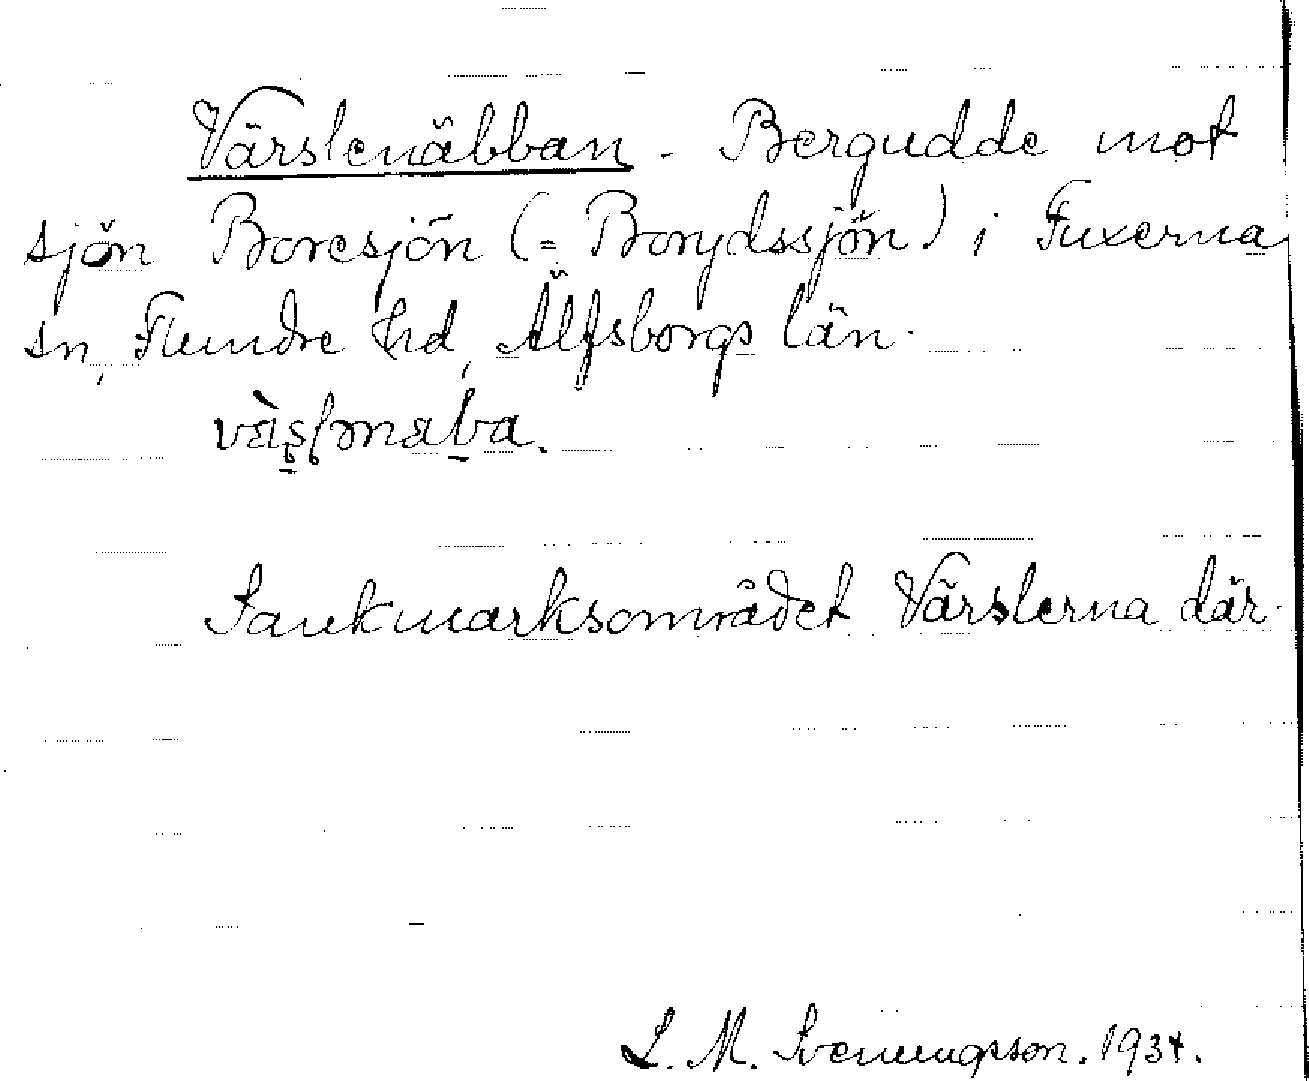 Värslenäbban. Bergudde mot
sjön Boresjön (= Borydssjön) i Fuxerna
sn, Flundre hd, Älfsborgs län.
Sankmarksområdet Värslerna där.
S. M. Svenungsson. 1934.